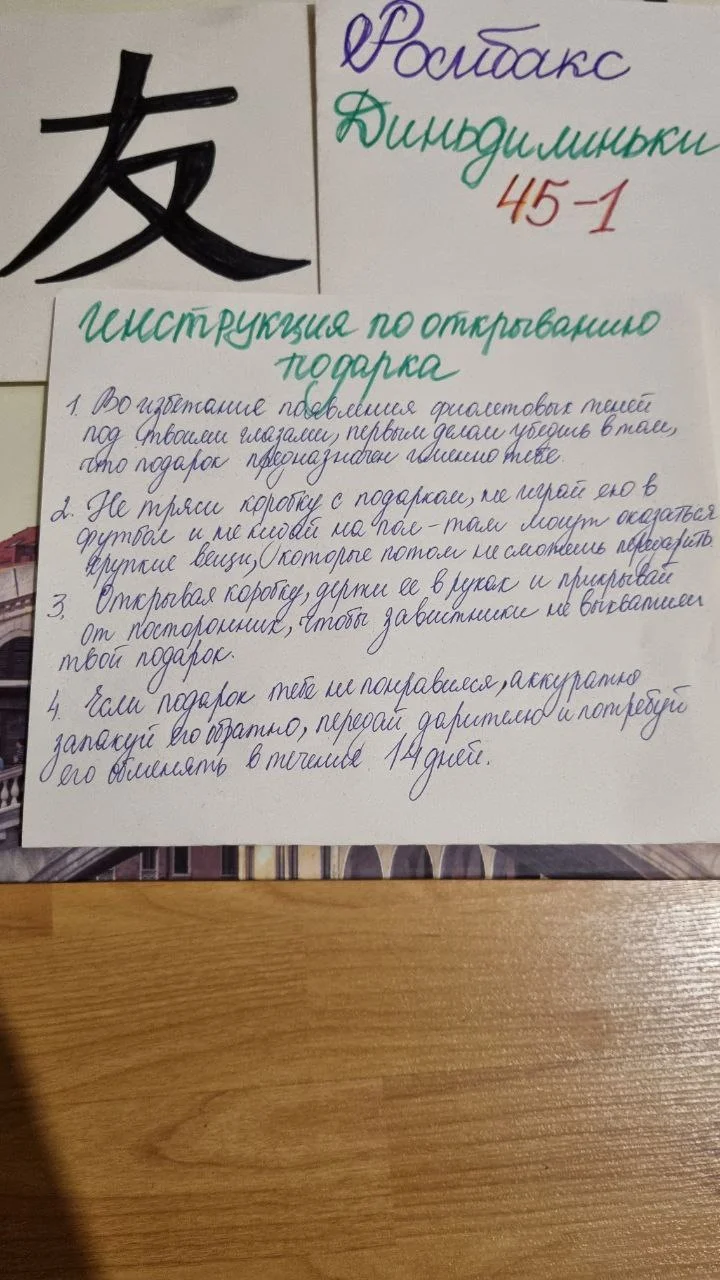 友
Фоспбакс
Диньдилиньки
45-1
Инструкция по открыванию
подарка
1. Во избежание появления фиолетовых теней
под твоими глазами, первым делом убедись в том,
что подарок предназначен именно тебе.
2. Не тряси коробку с подарком, не играй ею в
футбол и не кидай на пол - там могут оказаться
хрупкие вещи, которые потом не сможешь передарить.
3. Открывая коробку, держи ее в руках и прикрывай
от посторонних, чтобы завистники не выхватили
твой подарок.
4. Если подарок тебе не понравился, аккуратно
запакуй его обратно, передай дарителю и потребуй
его обменять в течение 14 дней.